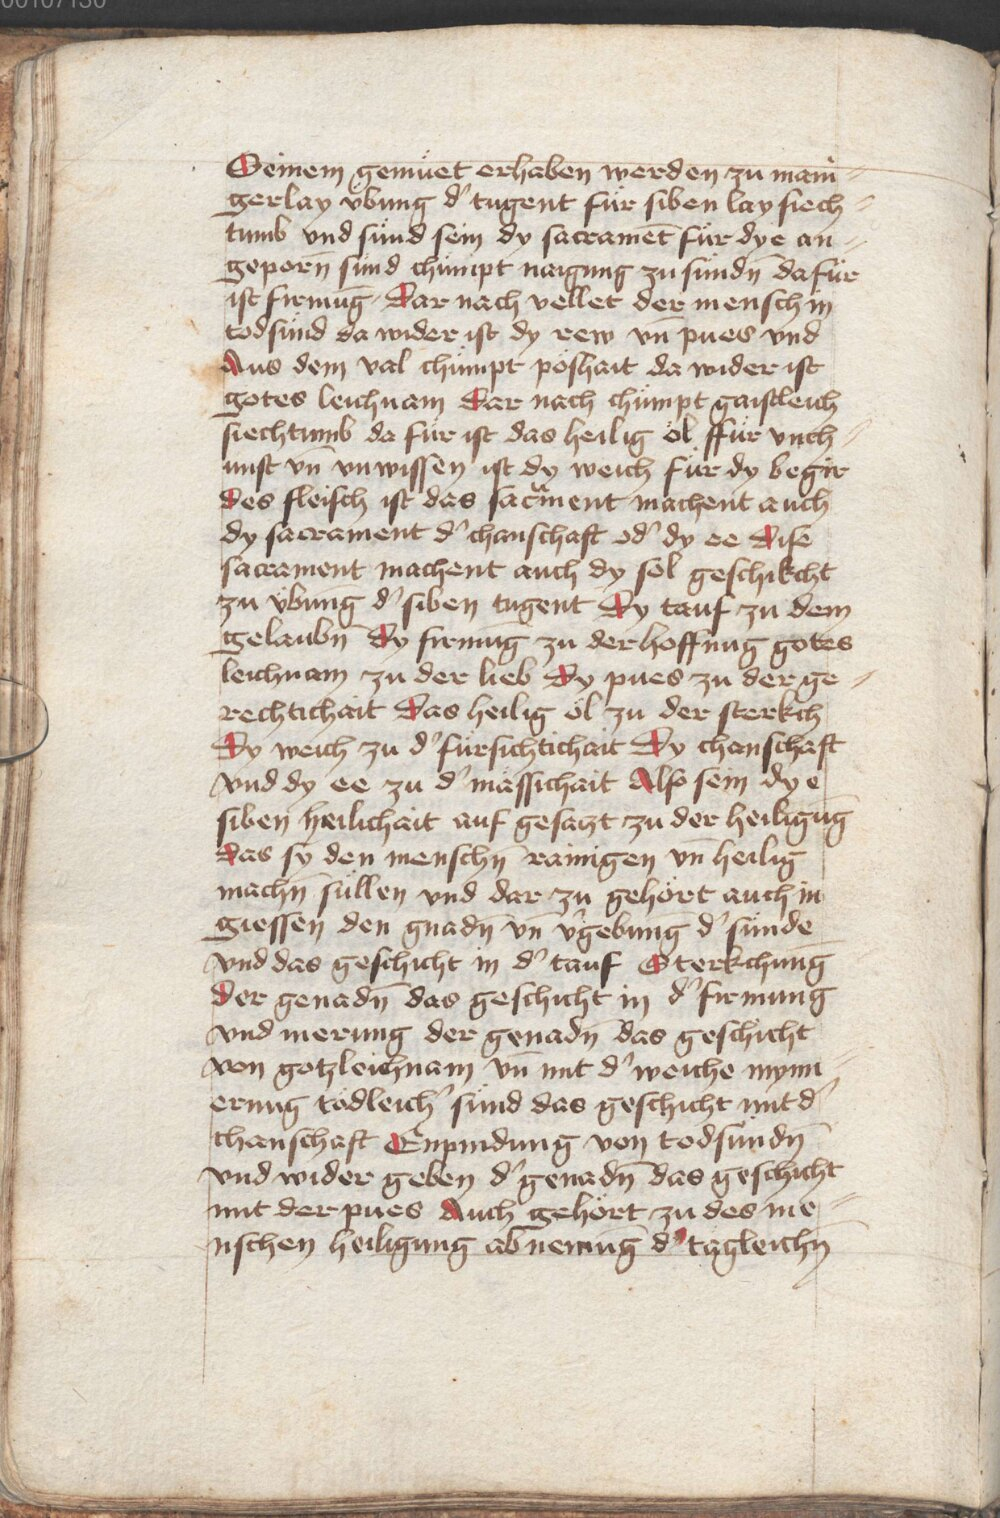 00107130
Seinem gemüet erhaben werden zu mani-
gerlay vbung d' tugent für siben lay siech-
tumb vnd sünd sein dy sacramēt für dye an-
geporn̄ sünd chümpt naigung zu sündn̄ dafür
ist firmūg Dar nach vellet der mensch in
todsünd da wider ist dy rew vn̄ pues vnd
Aus dem val chümpt poshait da wider ist
gotes leichnam Dar nach chümpt gaistleich
siechtumb da für ist das heilig öl ffür vnch-
unst vn̄ vnwissen ist dy weich für dy begir
des fleisch ist das sacᵃment machent auch
dy sacrament d' chanschaft od' dy ee Dise
sacrament machent auch dy sel geschikcht
zu vbung d' siben tugent Dy tauf zu dem
gelaubn̄ Dy firmūg zu der hoffnūg gotes
leichnam zu der lieb Dy pues zu der ge-
rechtichait Das heilig öl zu der sterkch
Dy weich zu d' fürsichtichait Dy chanschaft
vnd dy ee zu d' mässichait Also sein dye
siben heilichait auf gesatzt zu der heiligūg
das sy den menschn̄ rainigen vn̄ heilig
machn̄ süllen vnd dar zu gehört auch in
giessen den gnadn̄ vn̄ v'gebung d' sünde
vnd das geschicht in d' tauf Sterkchung
der genadn̄ das geschicht in d' firmung
vnd merung der genadn̄ das geschicht
von gotzleichnam vn̄ mit d' weiche mynn-
erung tödleich' sünd das geschicht mit d'
chanschaft Enpindung von todsündn̄
vnd wider geben d' genadn̄ das geschicht
mit der pues Auch gehört zu des me-
nschen heiligung abnemūg d' tägleichn̄